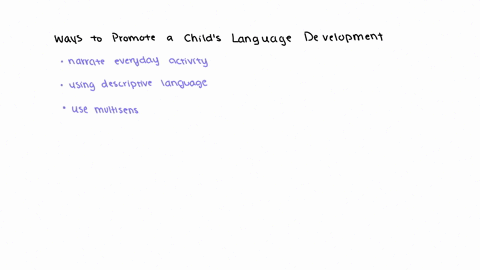 Ways to Promote a Child's Language Development
• narrate everyday activity
• using descriptive language
• use multisens